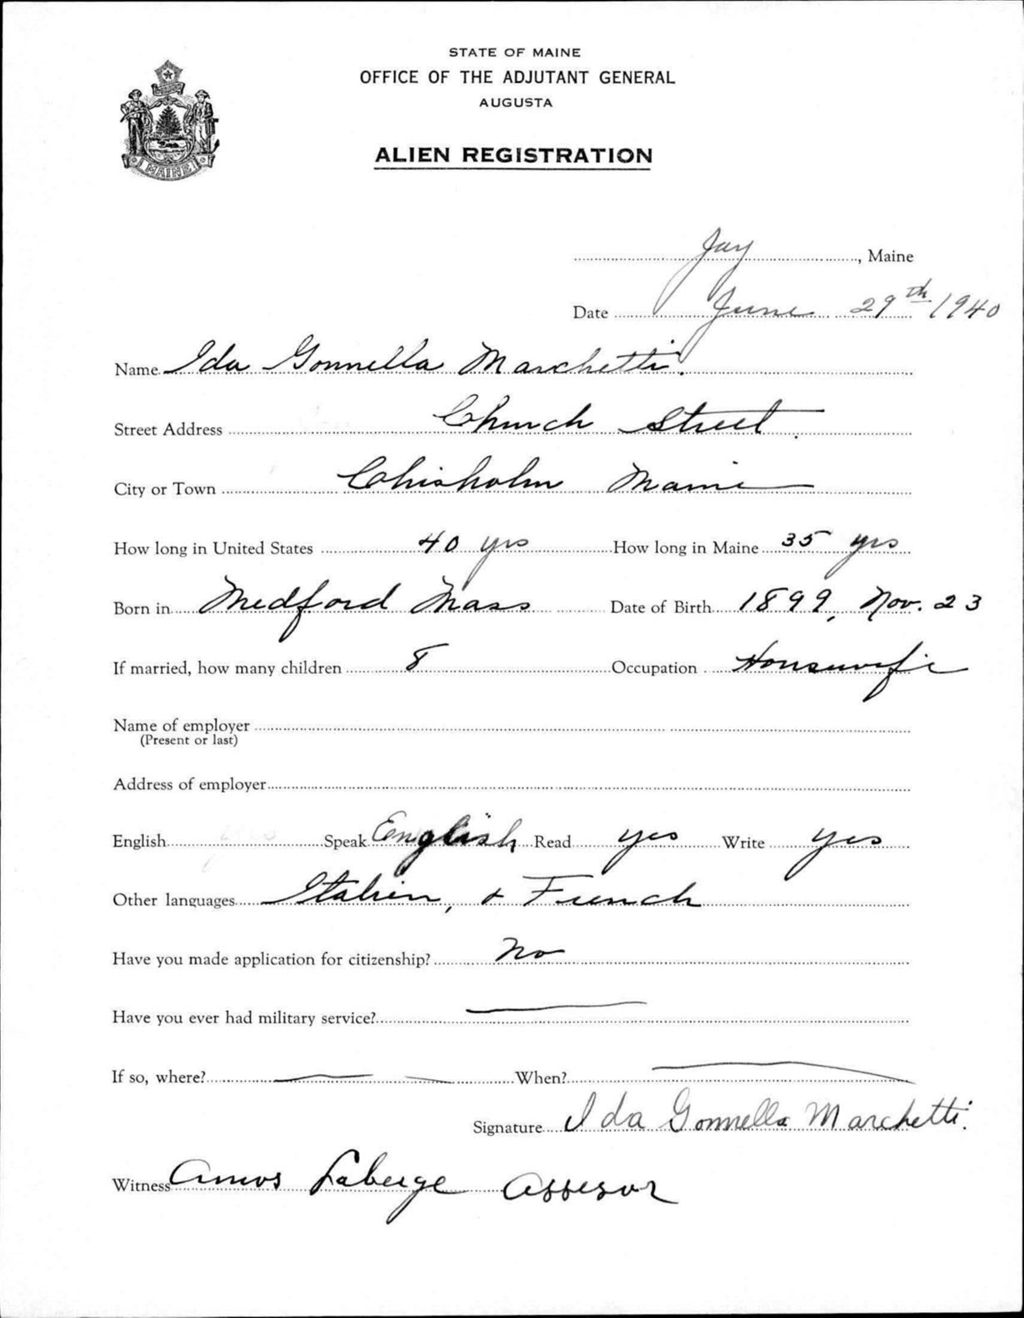 STATE OF MAINE
OFFICE OF THE ADJUTANT GENERAL
AUGUSTA
ALIEN REGISTRATION
MAINE
Jay, Maine
Date June 29th 1940
Name Ida Gonnella Marchetti
Street Address Church Street
City or Town Chisholm Maine
How long in United States 40 yrs How long in Maine 35 yrs
Born in Medford Mass Date of Birth 1899, Nov. 23
If married, how many children 8 Occupation Housewife
Name of employer
(Present or last)
Address of employer
English Speak English Read yes Write yes
Other languages Italien, + French
Have you made application for citizenship? No
Have you ever had military service?
If so, where? When?
Signature Ida Gonnella Marchetti.
Witness Amos Laberge Assesor